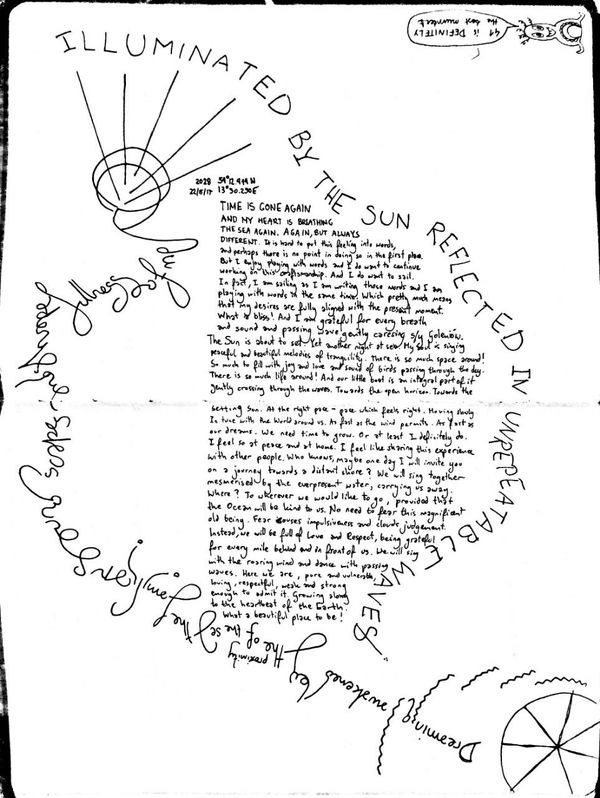 41 is DEFINITELY
the best number!
ILLUMINATED BY THE SUN REFLECTED IN UNREPEATABLE WAVES
2028 54°12.944N
22/5/17 13°30.230E
TIME IS GONE AGAIN
AND MY HEART IS BREATHING
THE SEA AGAIN. AGAIN, BUT ALWAYS
DIFFERENT. It is hard to put this feeling into words,
and perhaps there is no point in doing so in the first place.
But I enjoy playing with words and I do want to continue
working on this craftsmanship. And I do want to sail.
In fact, I am sailing as I am writing these words and I am
playing with words at the same time. Which pretty much means
that my desires are fully aligned with the present moment.
What a bliss! And I am grateful for every breath
and sound and passing wave gently caressing s/y Goleniów.
The Sun is about to set. Yet another night at sea. My soul is singing
peaceful and beautiful melodies of tranquility. There is so much space around!
So much to fill with joy and love and sound of birds passing through the day.
There is so much life around! And our little boat is an integral part of it
gently crossing through the waves. Towards the open horizon. Towards the
setting Sun. At the right pace - pace which feels right. Moving slowly
In tune with the World around us. As fast as the wind permits. As fast as
our dreams. We need time to grow. Or at least I definitely do.
I feel so at peace and at home. I feel like sharing this experience
with other people. Who knows, maybe one day I will invite you
on a journey towards a distant shore? We will sing together
mesmerised by the everpresent water, carrying us away.
Where? To wherever we would like to go, provided that
the Ocean will be kind to us. No need to fear this magnificent
old being. Fear causes impulsiveness and clouds judgement.
Instead, we will be full of Love and Respect, being grateful
for every mile behind and in front of us. We will sing
with the roaring wind and dance with passing
waves. Here we are, pure and vulnerable,
loving, respectful, weak and strong
enough to admit it. Growing along
to the heartbeat of the Earth.
What a beautiful place to be!
Dreaming, awakened by
the proximity
of the se
the familiar